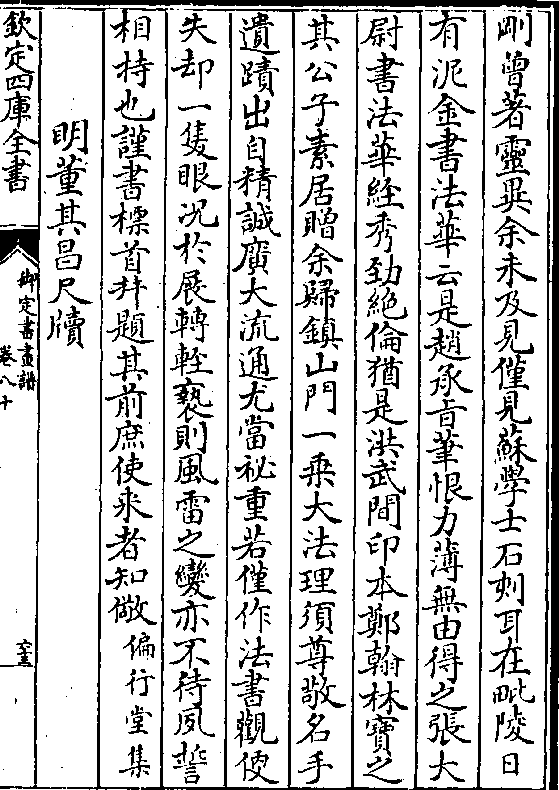 剛曾著靈異余未及見僅見蘇學士石刻耳在毗陵日
有泥金書法華云是趙承旨筆恨力薄無由得之張大
尉書法華經秀勁絶倫猶是洪武間印本鄭翰林寶之
其公子素居贈余歸鎮山門一乘大法理須尊敬名手
遺蹟出自精誠廣大流通尤當祕重若僅作法書觀便
失却一隻眼况於展轉輕褻則風雷之變亦不待夙誓
相持也謹書標首并題其前庶使来者知儆 徧行堂集
明董其昌尺牘
欽定四庫全書
御定書畫譜
卷八十
六十五